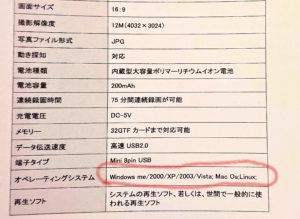 画面サイズ 16:9
撮影解像度 12M(4032×3024)
写真ファイル形式 JPG
動き探知 対応
電池種類 内蔵型大容量ポリマーリチウムイオン電池
電池容量 200mAh
連続録画時間 75 分間連続録画が可能
充電電圧 DC-5V
メモリー 32GTF カードまで対応可能
データ伝送速度 高速 USB2.0
端子タイプ Mini 8pin USB
オペレーティングシステム Windows me/2000/XP/2003/Vista; Mac Os;Linux;
再生ソフト システムの再生ソフト、若しくは、世間で一般的に使われる再生ソフト